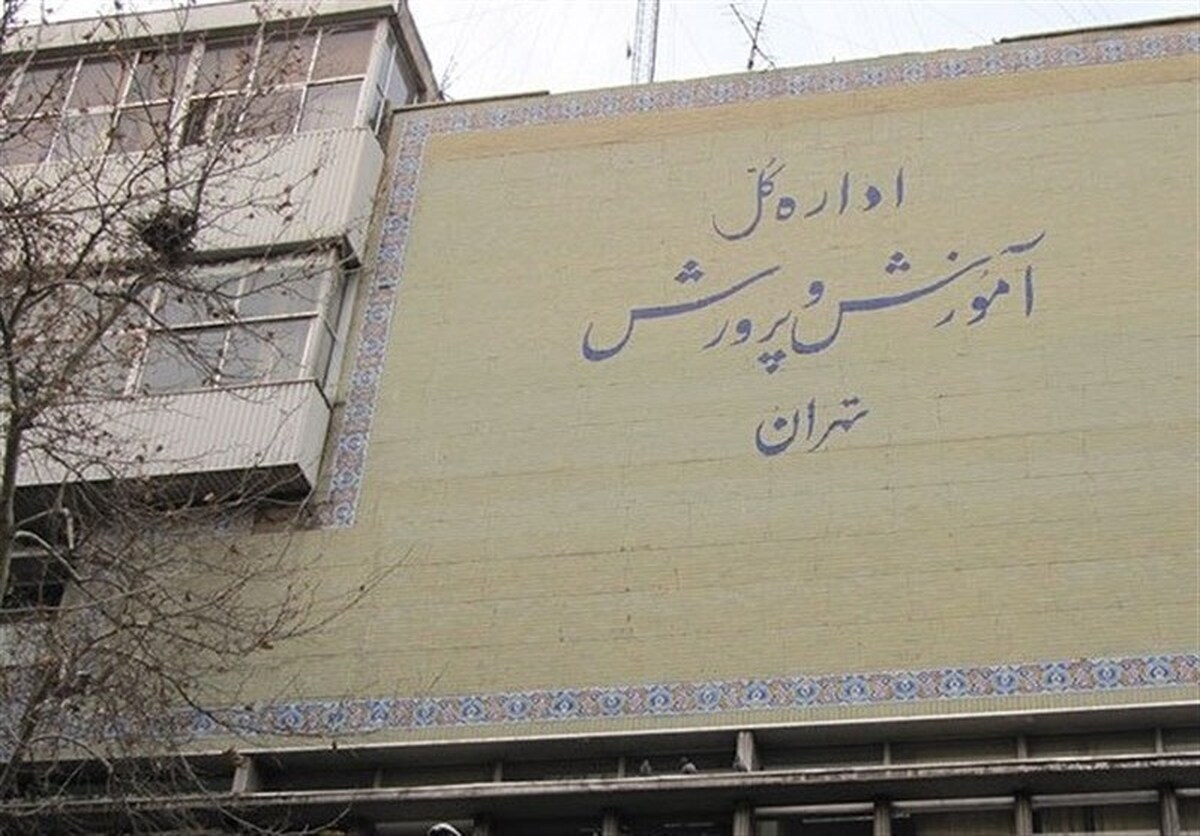 اداره کُلّ
آموُزش و پرورش
تهران